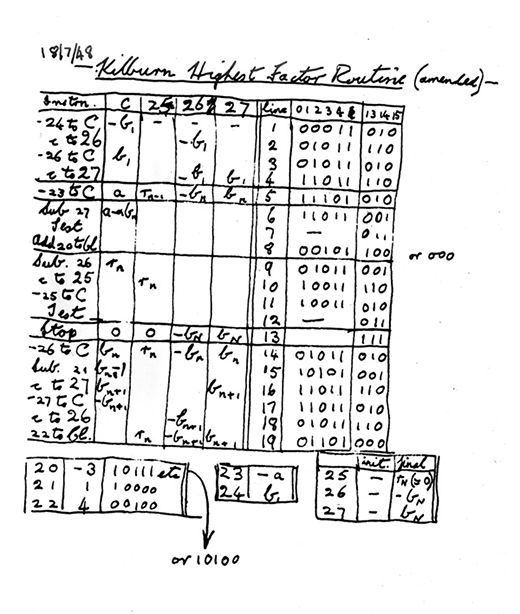 18/7/48
Kilburn Highest Factor Routine (amended)
Instn. C 25 26 27 line 0 1 2 3 4 13 14 15
-24 to C -b₁ - - - 1 00011 010
c to 26 -b₁ 2 01011 110
-26 to C b₁ 3 01011 010
c to 27 -b₁ b₁ 4 11011 110
-23 to C a rₙ₋₁ -bₙ bₙ 5 11101 010
Sub 27 a-bₙ 6 11011 001
Test 7 — 011
Add 20 to bl. 8 00101 100 or 000
Sub. 26 rₙ 9 01011 001
c to 25 rₙ 10 10011 110
-25 to C 11 10011 010
Test 12 — 011
Stop 0 0 -b_N b_N 13 111
-26 to C bₙ rₙ -bₙ bₙ 14 01011 010
Sub. 21 bₙ₊₁ 15 10101 001
c to 27 bₙ₊₁ bₙ₊₁ 16 11011 110
-27 to C -bₙ₊₁ 17 11011 010
c to 26 -bₙ₊₁ 18 01011 110
22 to bl. rₙ -bₙ₊₁ bₙ₊₁ 19 01101 000
20 -3 10111 etc
21 1 10000
22 4 00100
or 10100
23 -a
24 b₁
init. final
25 - r_N (=0)
26 - -b_N
27 - b_N